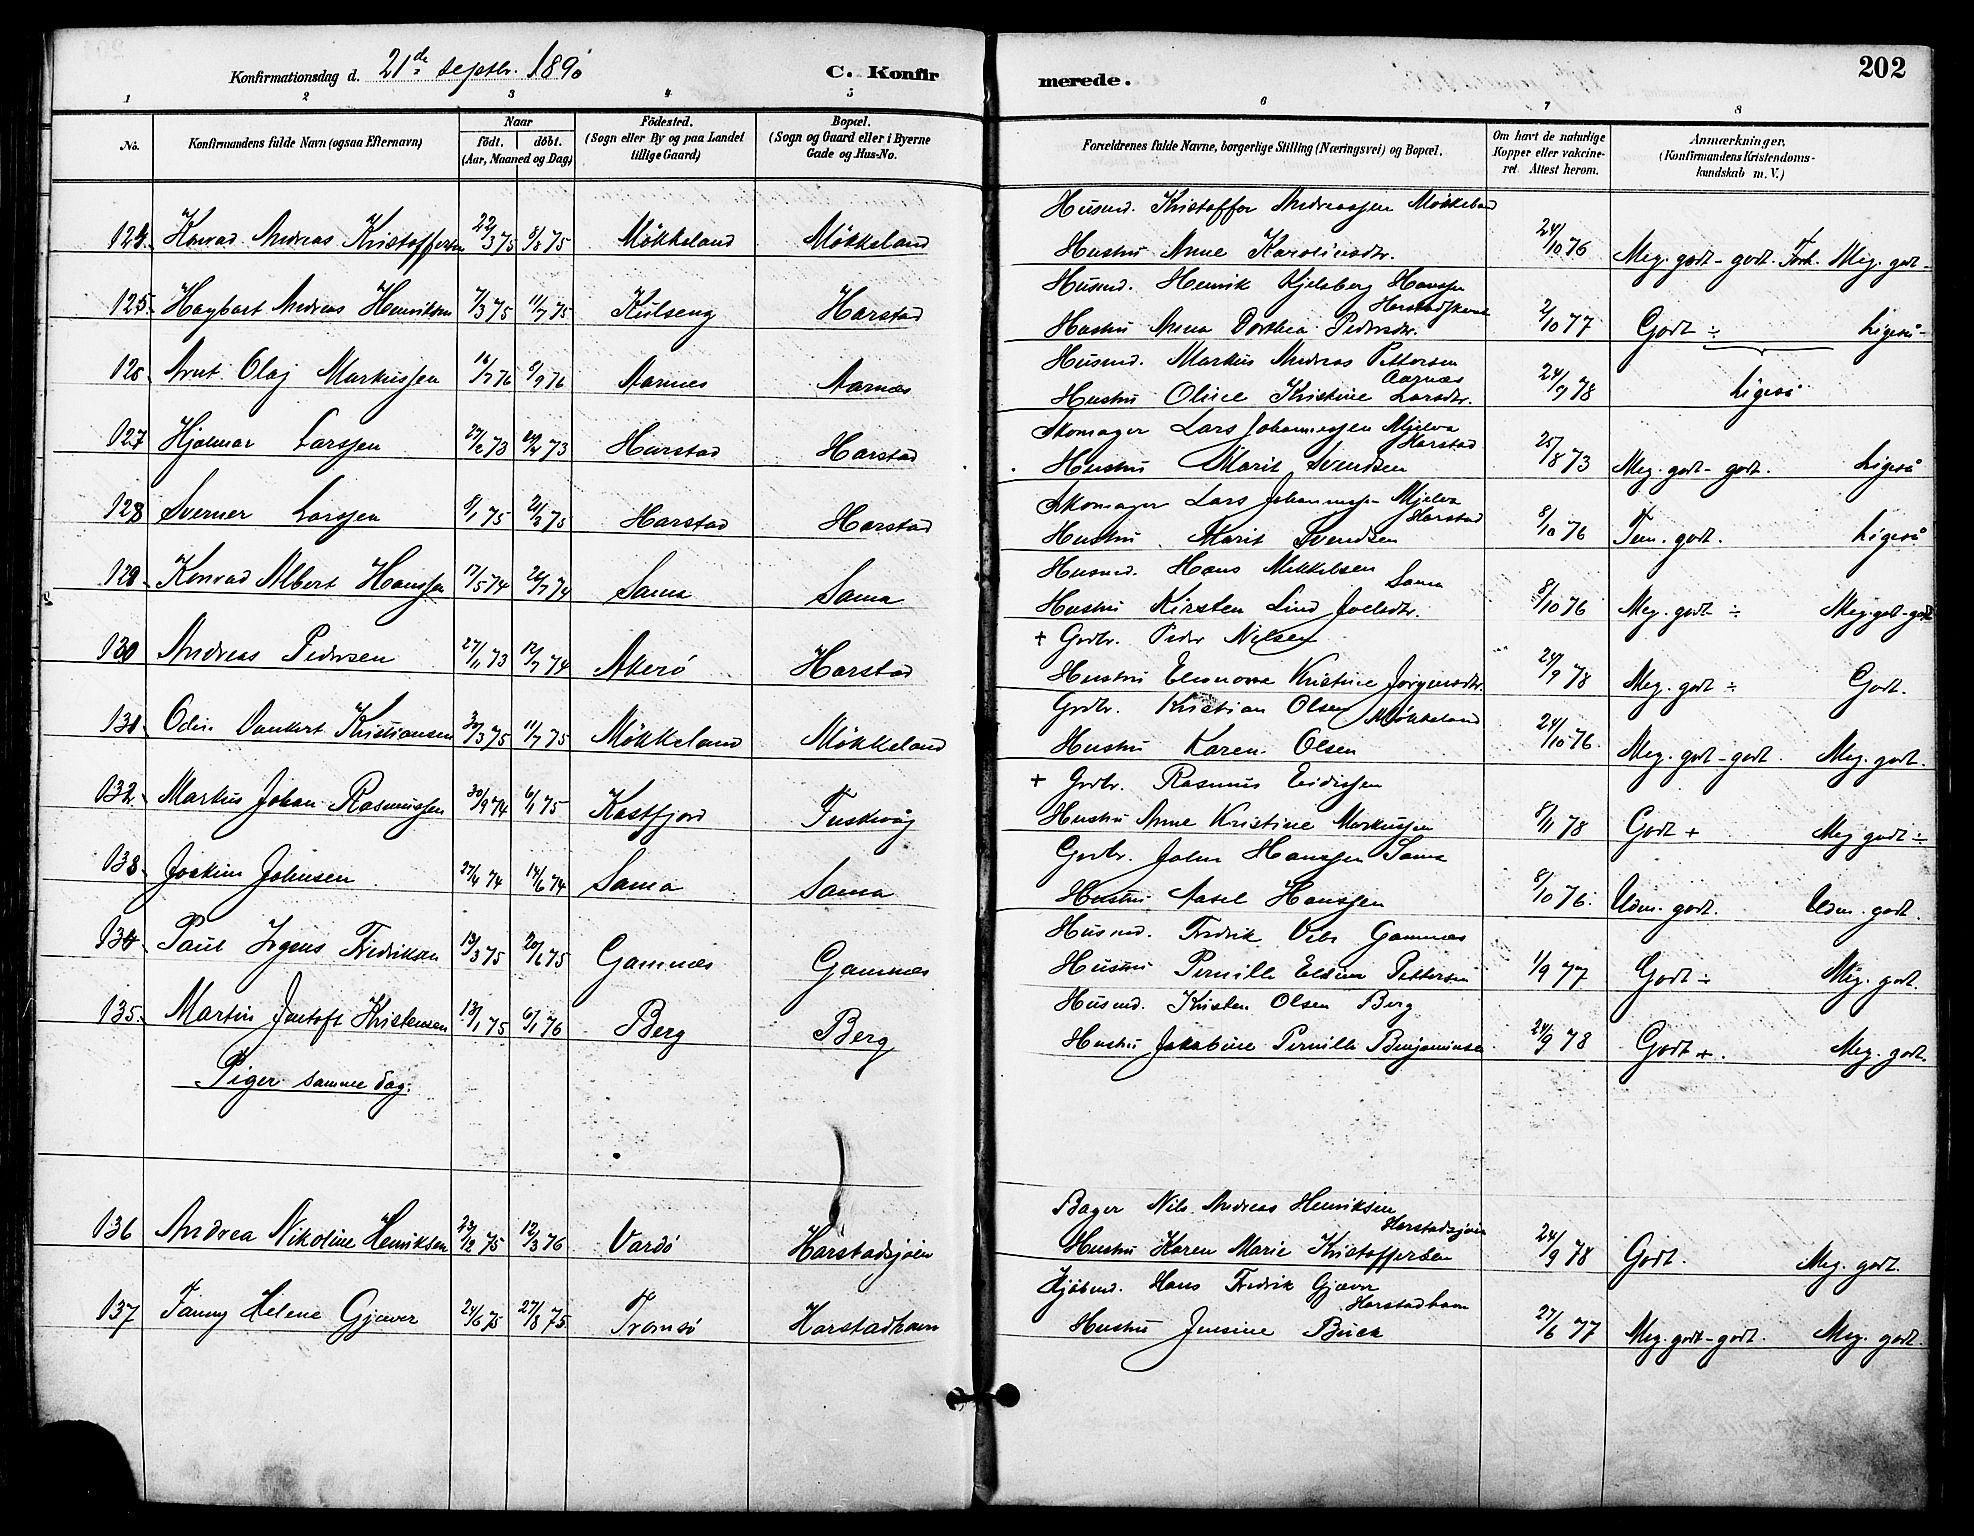 Konfirmationsdag d. 21de septbr. 1890 C. Konfirmerede. 202
1 2 3 4 5 6 7 8
No. Konfirmandens fulde Navn (ogsaa Efternavn) Naar födt. döbt. (Aar, Maaned og Dag) Födested. (Sogn eller By og paa Landet tillige Gaard) Bopæl. (Sogn og Gaard eller i Byerne Gade og Hus-No. Forældrenes fulde Navne, borgerlige Stilling (Næringsvei) og Bopæl. Om havt de naturlige Kopper eller vakcineret. Attest herom. Anmærkninger. (Konfirmandens Kristendomskundskab m. V.)
Husmd. Kristoffer Andreassen Møkkeland
124. Konrad Andreas Kristoffersen 22/3 75 8/8 75 Møkkeland Møkkeland Hustru Anne Karolinsdtr. 24/10 76 Meg. godt - godt. Forh. Meg. godt -
Husmd. Henrik Kjelsberg Hanssen
125. Hagbart Andreas Henriksen 7/3 75 11/7 75 Kulseng Harstad Hustru Anna Dorthea Pedersdtr. 2/10 77 Godt ÷ Ligeså -
Husmd. Markus Andreas Pettersen Aarnæs
126. Arnt Olaj Markussen 16/7 76 9/9 76 Aarnes Aarnæs Hustru Oline Kristine Larsdtr. 24/9 78 Ligeså
Skomager Lars Johannessen Mjelva Harstad
127 Hjalmar Larssen 27/2 73 73 Harstad Harstad Hustru Marit Svendsen 25/8 73 Meg. godt - godt. Ligeså
Skomager Lars Johannss. Mjelva Harstad
128 Sverner Larssen 8/1 75 21/3 75 Harstad Harstad Hustru Marit Svendsen 8/10 76 Tem. godt. Ligeså
Husmd. Hans Mikkelsen Sama
129. Konrad Albert Hanssen 17/5 74 26/7 74 Sama Sama Hustru Kirsten Lind Joelsdtr. 8/10 76 Meg. godt ÷ Meg. godt - godt
+ Grdbr. Peder Nilsen
130 Andreas Pedersen 27/11 73 12/7 74 Akerö Harstad Hustru Eleonora Kristine Jørgensdtr. 24/9 78 Meg. godt ÷ Godt.
Grdbr. Kristian Olsen Møkkeland
131. Odin Kristiansen 30/3 75 11/7 75 Møkkeland Møkkeland Hustru Karen Olsen 24/10 76. Meg. godt - godt. Meg. godt.
+ Grdbr. Rasmus Eidissen
132. Markus Johan Rasmussen 30/9 74 6/1 75 Kastfjord Fuskevåg Hustru Anne Kristine Markussen 8/11 78 Godt + Meg godt ÷
Grdbr. John Hanssen Sama
133. Joakim Johnsen 27/4 74 14/6 74 Sama Sama Hustru Aasel Hanssen 8/10 76. Udm. godt. Udm. godt.
Husmd. Fredrik Gamnæs
134. Paul Irgens Fredriksen 13/3 75 20/6 75 Gamnæs Gamnæs Hustru Pernille Pettersen 1/9 77 Godt ÷ Meg. godt.
Husmd. Kristen Olsen Berg
135. Martin Jentoft Kristensen 13/1 75 6/1 76 Berg Berg Hustru Jakobine Pernille Benjaminsen 24/9 78 Godt +. Meg. godt.
Piger samme dag.
Bager Nils Andreas Henriksen Harstadsjøen
136 Andrea Nikoline Henriksen 23/12 75 12/3 76 Vardö Harstadsjøen Hustru Karen Marie Kristoffersen 24/9 78 Godt. Meg. godt.
Kjöbmd. Hans Fredrik Gjæver Harstadhavn
137 Fanny Helene Gjæver 24/6 75 27/8 75. Tromsö Harstadhavn Hustru Jensine Buck 27/6 77 Meg. godt - godt. Meg. godt.